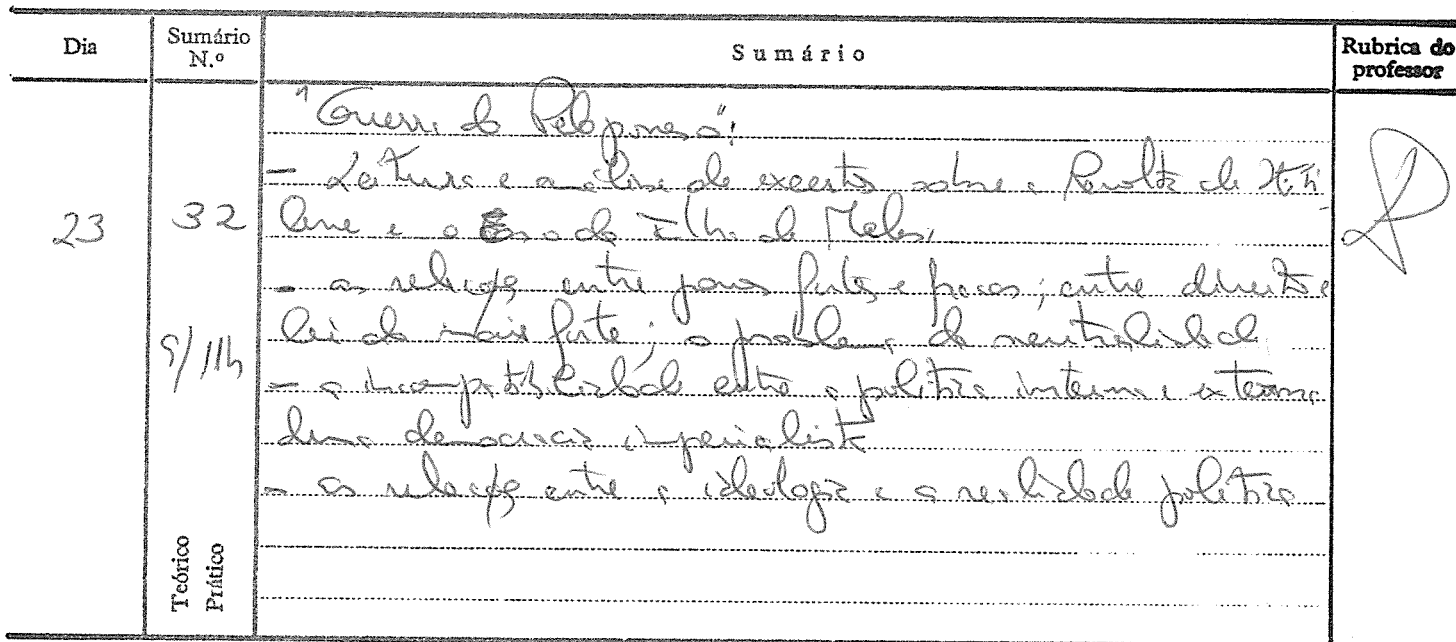 Dia
Sumário N.º
Sumário
Rubrica do professor
"Guerra do Peloponeso":
- Leitura e análise de excertos sobre a Revolta de Miti
23
32
lene e o caso da Ilha de Melos,
- as relações entre povos fortes e fracos; entre direito e
9/11h
lei do mais forte; o problema da neutralidade
- a incompatibilidade entre a política interna e externa
duma democracia imperialista
- as relações entre a ideologia e a realidade política
Teórico
Prático